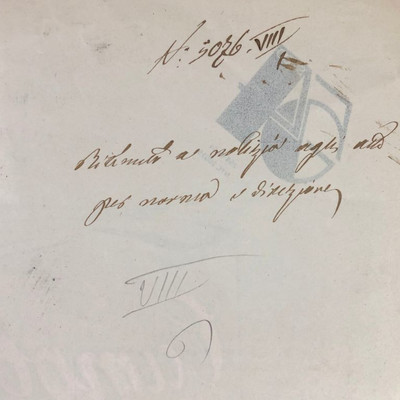 N.° 5076. VIII
Ritenuto a notizia agli atti
per norma e direzione
VIII